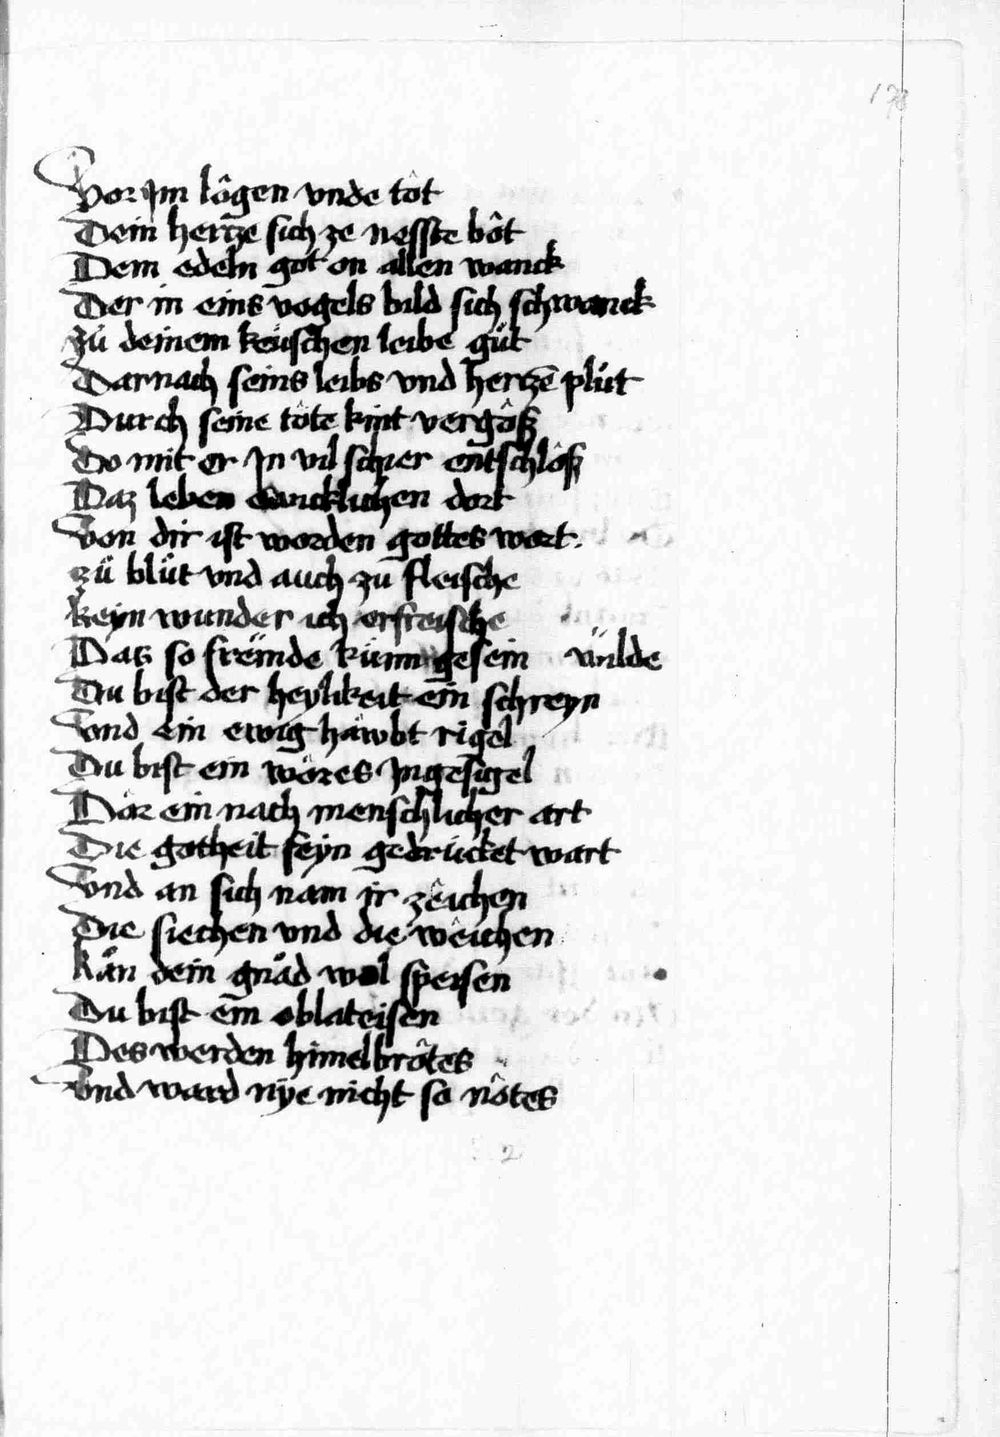 178
Vor Jm lôgen vnde tôt
Dein hertze sich ze nesste bôt
Dem edeln got on allen wanck
Der in eins vogels bild sich schwanck
Zů deinem keüschen leibe gůt
Darnach seins leibs vnd hertzē plůt
Durch seine tôte kint vergôß
Do mit er Jn vil schier entschlôß
Daz leben ewicklichen dort
Von dir ist worden gottes wort.
Zů blůt vnd auch zu fleische
keyn wunder ich erfreische
Das so frëmde künn gesein wilde
Du bist der heylikeit ein schreyn
Vnd ein ewig hawbt rigel
Du bist ein wôres Jngesigel
Dar ein nach menschlicher art
Die gotheit feyn gedrücket wart
Vnd an sich nam ir zêichen
Die siechen vnd die wêichen
Kan dein gnad wol speisen
Du bist ein oblateisen
Des werden himelbrôtes
Vnd ward nye nicht so nôtes
2